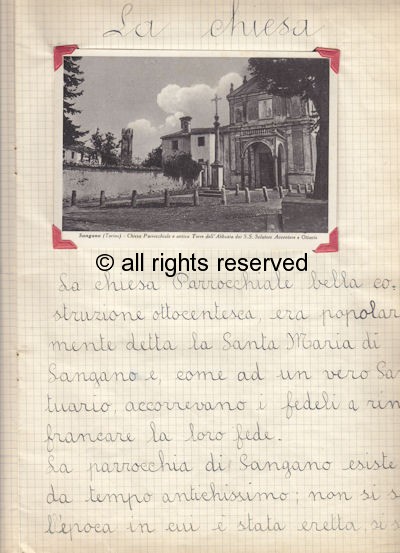 La chiesa
Sangano (Torino) - Chiesa Parrocchiale e antica Torre dell'Abbazia dei S.S. Solutore Avventore e Ottavio
© all rights reserved
La chiesa Parrocchiale bella co-
struzione ottocentesca, era popolar
mente detta la Santa Maria di
Sangano e, come ad un vero San
tuario, accorrevano i fedeli a rin
francare la loro fede.
La parrocchia di Sangano esiste
da tempo antichissimo; non si s
l'epoca in cui è stata eretta, si s